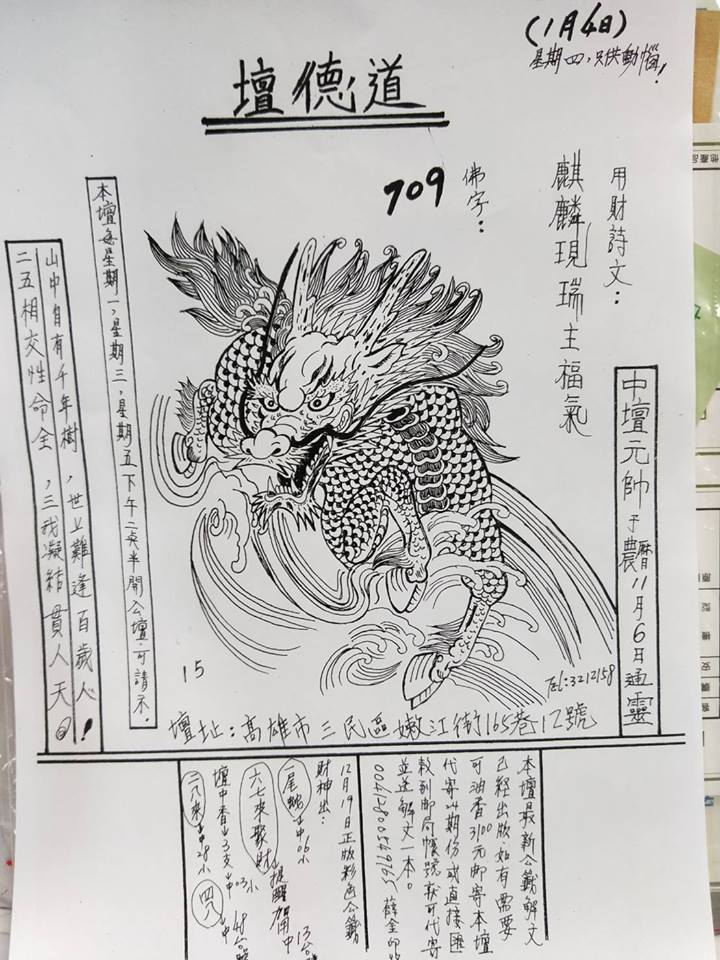 (1月4日)
星期四,只供動惱!
道德壇
用財詩文:
麒麟現瑞主福氣
佛字:
709
中壇元帥于農曆11月6日通靈
本壇每星期一,星期三,星期五下午二夾半開公壇.可請示.
山中自有千年樹,世上難逢百歲人!
二五相交性命全,三我凝結貫人天
15
Tel:3212158
壇址:高雄市三民區嫩江街165巷12號
本壇最新公籤解文
已經出版.如有需要
可油香3100元郵寄本壇
代寄以期份或直接匯
款到郵局帳號
並送解文一本。
12月19日正版彩色公籤
財神出:
一尾蛇↓中06小
六七來聚財
壇中香↓3支↓中03小
二八來↓中28小
四八